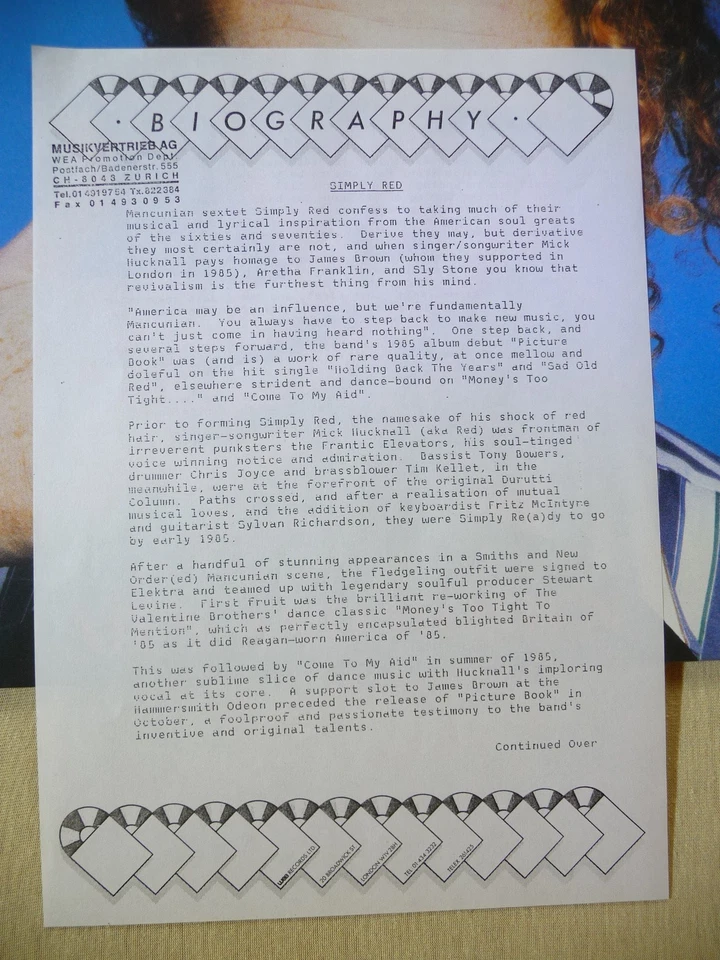 · BIOGRAPHY ·
MUSIKVERTRIEB AG
WEA Promotion Dept.
Postfach/Badenerstr. 555
CH-8043 ZURICH
Tel. 01 4919754 Tx. 822384
Fax 01 4930953
SIMPLY RED
Mancunian sextet Simply Red confess to taking much of their
musical and lyrical inspiration from the American soul greats
of the sixties and seventies. Derive they may, but derivative
they most certainly are not, and when singer/songwriter Mick
Hucknall pays homage to James Brown (whom they supported in
London in 1985), Aretha Franklin, and Sly Stone you know that
revivalism is the furthest thing from his mind.
"America may be an influence, but we're fundamentally
Mancunian. You always have to step back to make new music, you
can't just come in having heard nothing". One step back, and
several steps forward, the band's 1985 album debut "Picture
Book" was (and is) a work of rare quality, at once mellow and
doleful on the hit single "Holding Back The Years" and "Sad Old
Red", elsewhere strident and dance-bound on "Money's Too
Tight...." and "Come To My Aid".
Prior to forming Simply Red, the namesake of his shock of red
hair, singer-songwriter Mick Hucknall (aka Red) was frontman of
irreverent punksters the Frantic Elevators, his soul-tinged
voice winning notice and admiration. Bassist Tony Bowers,
drummer Chris Joyce and brassblower Tim Kellet, in the
meanwhile, were at the forefront of the original Durutti
Column. Paths crossed, and after a realisation of mutual
musical loves, and the addition of keyboardist Fritz McIntyre
and guitarist Sylvan Richardson, they were Simply Re(a)dy to go
by early 1985.
After a handful of stunning appearances in a Smiths and New
Order(ed) Mancunian scene, the fledgeling outfit were signed to
Elektra and teamed up with legendary soulful producer Stewart
Levine. First fruit was the brilliant re-working of The
Valentine Brothers' dance classic "Money's Too Tight To
Mention", which as perfectly encapsulated blighted Britain of
'85 as it did Reagan-worn America of '85.
This was followed by "Come To My Aid" in summer of 1985,
another sublime slice of dance music with Hucknall's imploring
vocal at its core. A support slot to James Brown at the
Hammersmith Odeon preceded the release of "Picture Book" in
October, a foolproof and passionate testimony to the band's
inventive and original talents.
Continued Over
RECORDS LTD.
20 BROADWICK ST
LONDON W1V 2BH
TEL: 01 434 3232
TELEX 261425